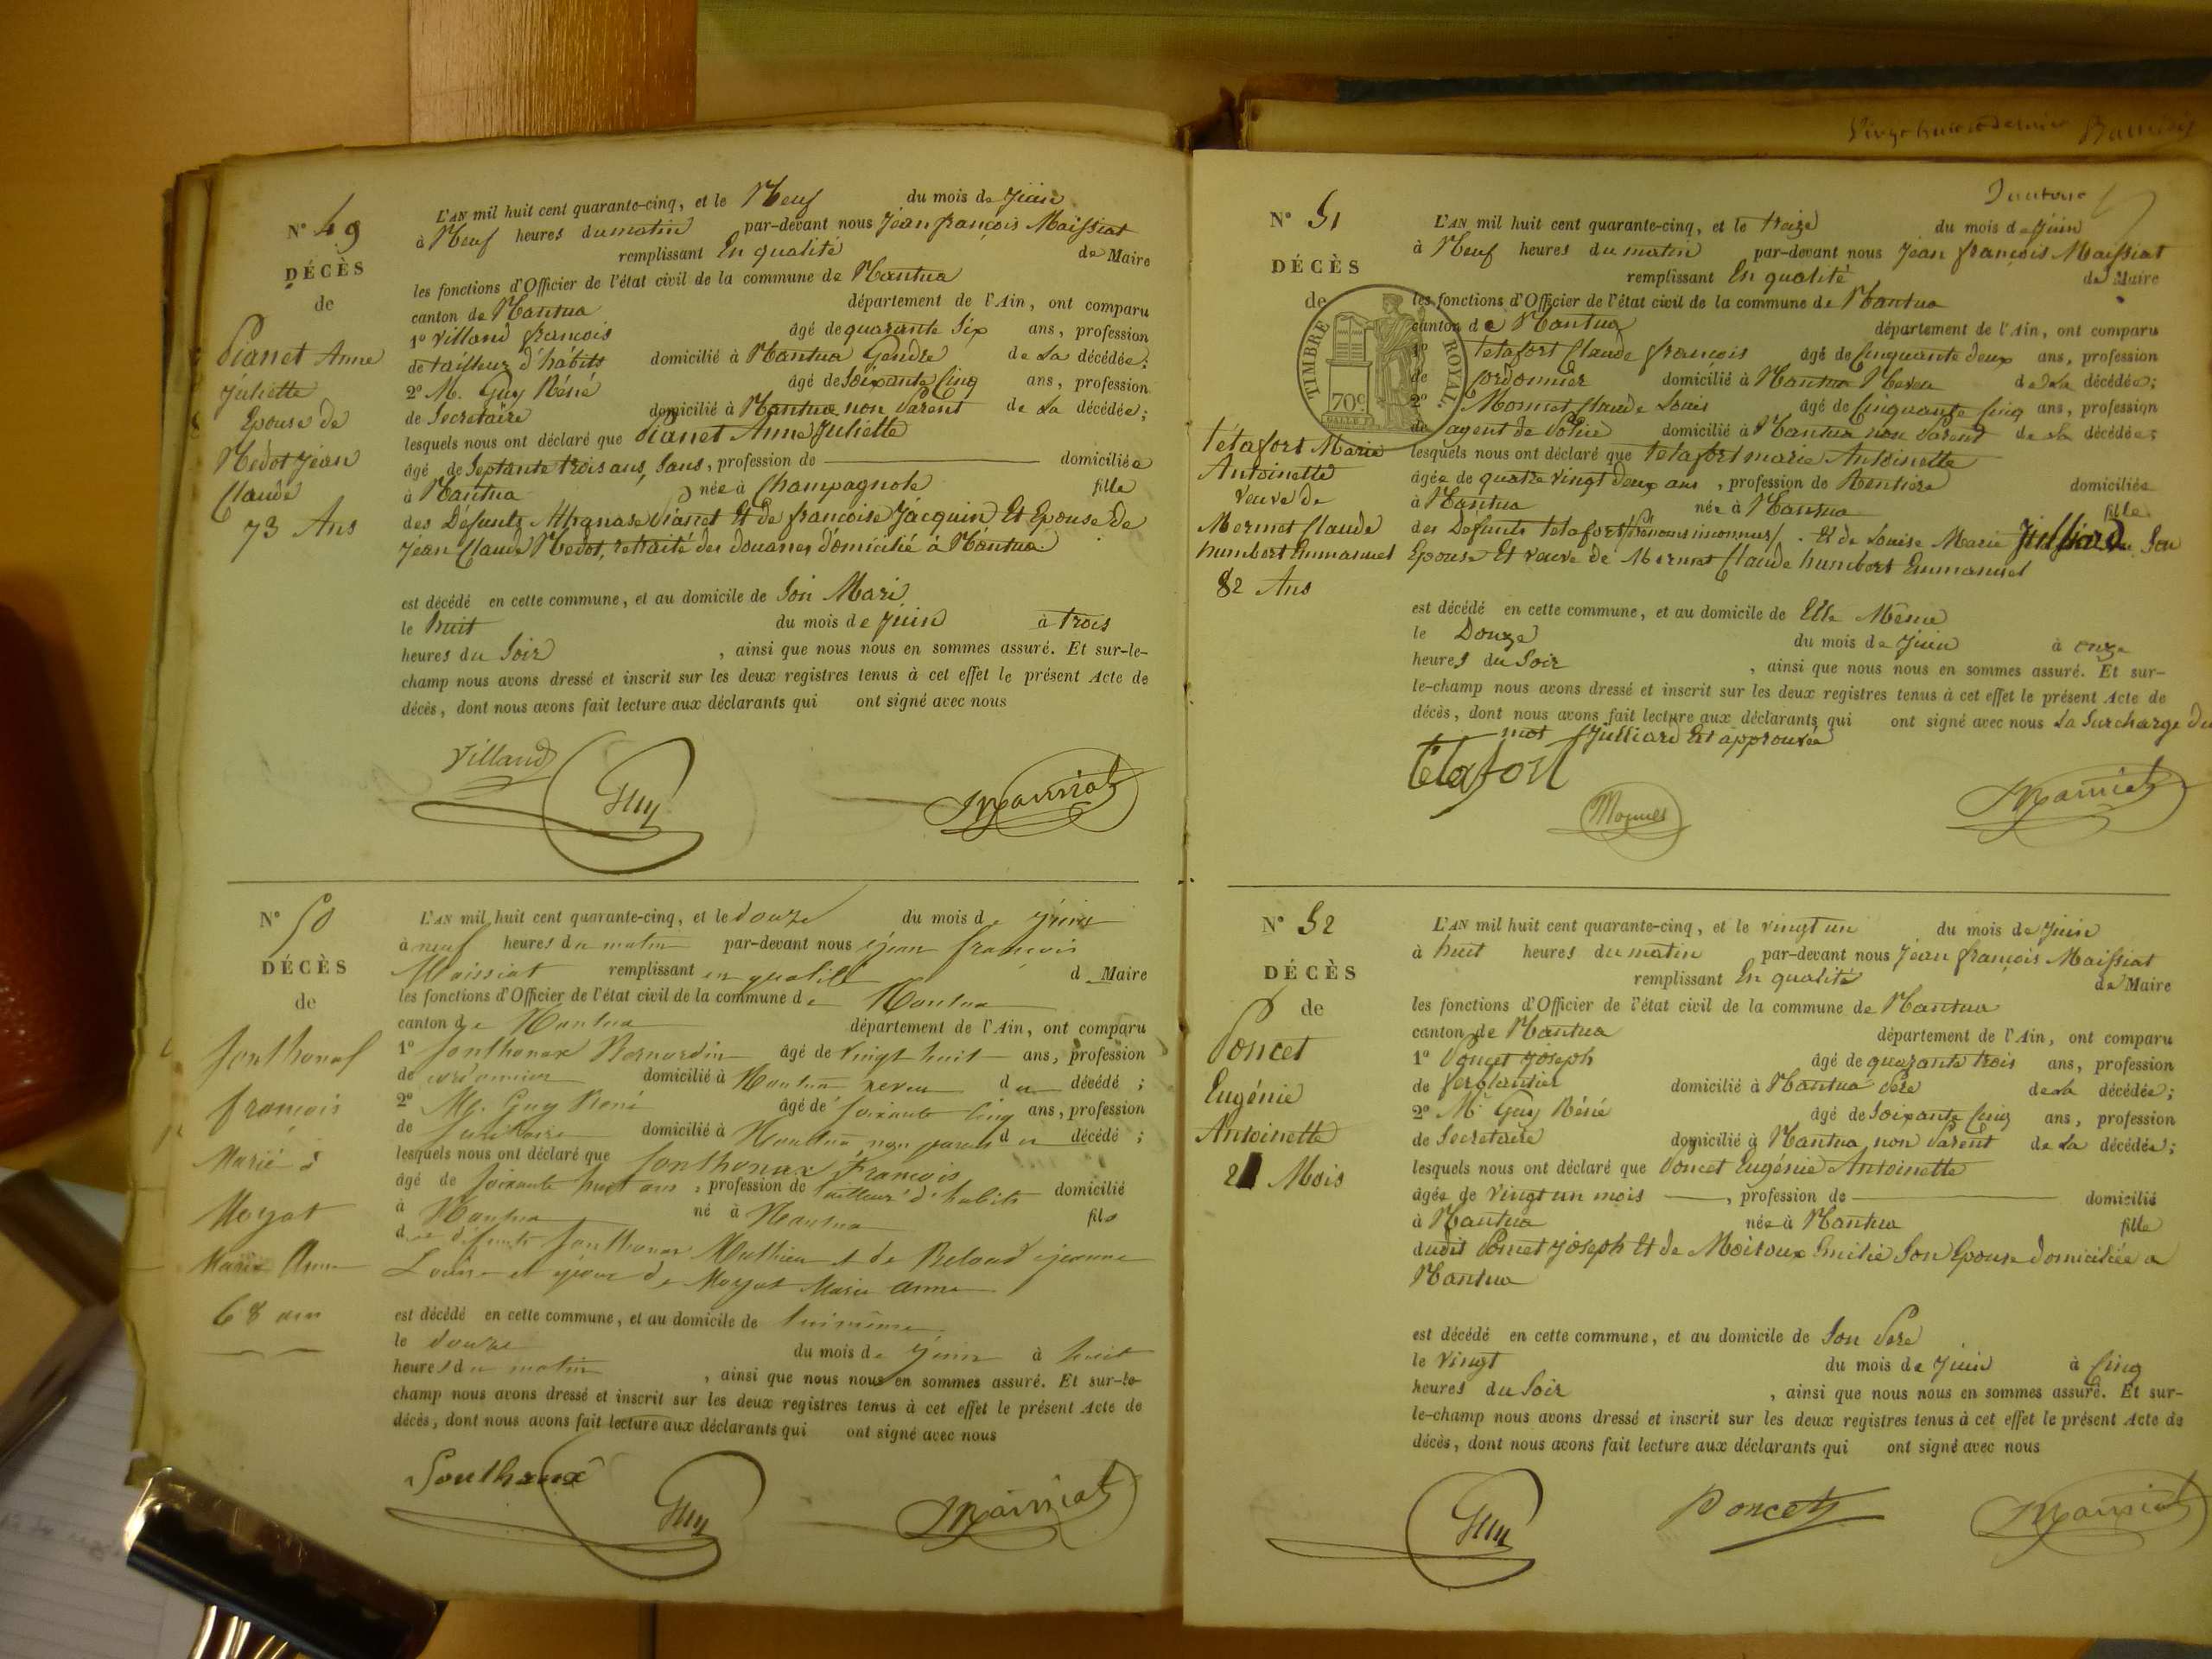 N° 49
DÉCÈS
de
Pianet Anne
Juliette
Epouse de
Nedot Jean
Claude
73 Ans
L'AN mil huit cent quarante-cinq, et le Neuf du mois de Juin
à Neuf heures du matin par-devant nous Jean françois Maissiat
remplissant En qualité de Maire
les fonctions d'Officier de l'état civil de la commune de Nantua
canton de Nantua département de l'Ain, ont comparu
1° Villand françois âgé de quarante Six ans, profession
de tailleur d'habits domicilié à Nantua Gendre de La décédée;
2° M. Guy Réné âgé de Soixante Cinq ans, profession
de Secretaire domicilié à Nantua non Parent de La décédée;
lesquels nous ont déclaré que Pianet Anne Juliette
âgé de Septante trois ans, Sans, profession de domiciliée
à Nantua née à Champagnole fille
des Défunts Pianet Et de françoise Jacquin Et Epouse de
Jean Claude Nedot, retraité des douanes domicilié à Nantua
est décédé en cette commune, et au domicile de Son Mari
le huit du mois de Juin à trois
heures du Soir, ainsi que nous nous en sommes assuré. Et sur-le-
champ nous avons dressé et inscrit sur les deux registres tenus à cet effet le présent Acte de
décès, dont nous avons fait lecture aux déclarants qui ont signé avec nous
Villand Guy Maissiat
N° 50
DÉCÈS
de
Jonthonax
françois
Marié à
Moyat
Marie Anne
68 ans
L'AN mil huit cent quarante-cinq, et le douze du mois de juin
à neuf heures du matin par-devant nous jean françois
Maissiat remplissant en qualité d Maire
les fonctions d'Officier de l'état civil de la commune de Nantua
canton de Nantua département de l'Ain, ont comparu
1° Jonthonax Bernardin âgé de vingt huit ans, profession
de cordonnier domicilié à Nantua neveu du décédé;
2° M. Guy René âgé de soixante cinq ans, profession
de secretaire domicilié à Nantua non parent du décédé;
lesquels nous ont déclaré que Jonthonax François
âgé de soixante huit ans, profession de tailleur d'habits domicilié
à Nantua né à Nantua fils
des défunts Jonthonax Mathieu et de jeanne
Louise et epoux de Moyat Marie Anne
est décédé en cette commune, et au domicile de lui même
le douze du mois de juin à huit
heures du matin, ainsi que nous nous en sommes assuré. Et sur-le-
champ nous avons dressé et inscrit sur les deux registres tenus à cet effet le présent Acte de
décès, dont nous avons fait lecture aux déclarants qui ont signé avec nous
Jonthonax Guy Maissiat
N° 51
DÉCÈS
de
TIMBRE ROYAL
70c
tétafort Marie
Antoinette
veuve de
Mermet Claude
humbert Emmanuel
82 Ans
L'AN mil huit cent quarante-cinq, et le treize du mois de Juin
à Neuf heures du matin par-devant nous Jean françois Maissiat
remplissant En qualité de Maire
les fonctions d'Officier de l'état civil de la commune de Nantua
canton de Nantua département de l'Ain, ont comparu
1° tetafort Claude françois âgé de Cinquante deux ans, profession
de Cordonnier domicilié à Nantua Neveu de La décédée;
2° Monnet Claude Louis âgé de Cinquante Cinq ans, profession
de agent de Police domicilié à Nantua non Parent de La décédée;
lesquels nous ont déclaré que tetafort marie Antoinette
âgée de quatre vingt deux ans, profession de Rentiere domiciliée
à Nantua née à Nantua fille
des Défunts tetafort (Prénoms inconnus) Et de Louise Marie Julliard Son
Epouse Et veuve de Mermet Claude humbert Emmanuel
est décédé en cette commune, et au domicile de Elle Même
le Douze du mois de Juin à onze
heures du Soir, ainsi que nous nous en sommes assuré. Et sur-
le-champ nous avons dressé et inscrit sur les deux registres tenus à cet effet le présent Acte de
décès, dont nous avons fait lecture aux déclarants qui ont signé avec nous La Surcharge du
mot Julliard Est approuvée
tetafort Monnet Maissiat
N° 52
DÉCÈS
de
Poncet
Eugénie
Antoinette
21 Mois
L'AN mil huit cent quarante-cinq, et le vingt un du mois de Juin
à huit heures du matin par-devant nous Jean françois Maissiat
remplissant En qualité de Maire
les fonctions d'Officier de l'état civil de la commune de Nantua
canton de Nantua département de l'Ain, ont comparu
1° Poncet Joseph âgé de quarante trois ans, profession
de ferblantier domicilié à Nantua Père de La décédée;
2° M. Guy Réné âgé de Soixante Cinq ans, profession
de Secretaire domicilié à Nantua non Parent de La décédée;
lesquels nous ont déclaré que Poncet Eugénie Antoinette
âgée de vingt un mois, profession de domicilié
à Nantua née à Nantua fille
dudit Poncet Joseph Et de Moiroux Emilie Son Epouse domiciliée a
Nantua
est décédé en cette commune, et au domicile de Son Père
le vingt du mois de Juin à Cinq
heures du Soir, ainsi que nous nous en sommes assuré. Et sur-
le-champ nous avons dressé et inscrit sur les deux registres tenus à cet effet le présent Acte de
décès, dont nous avons fait lecture aux déclarants qui ont signé avec nous
Guy Poncet Maissiat